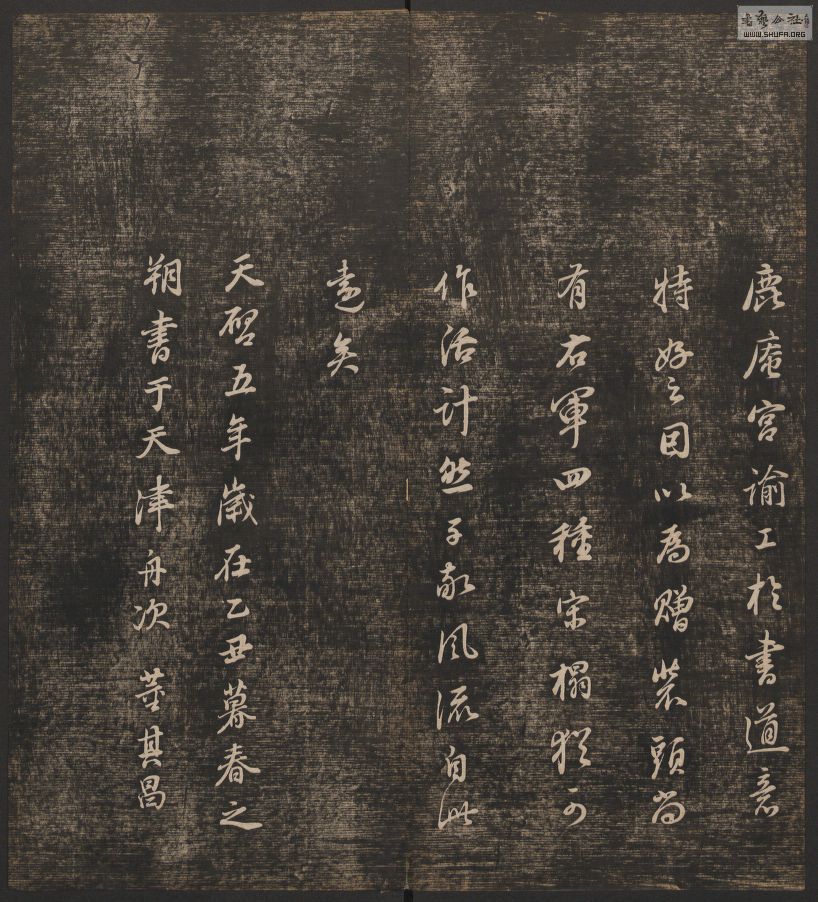 鹿庵宫諭工於書道意
特好之因以為贈裝頭尚
有右軍四種宋榻猶可
作活計然子敬風流自此
遠矣
天啓五年歲在乙丑暮春之
朔書于天津舟次 董其昌
书艺公社
WWW.SHUFA.ORG